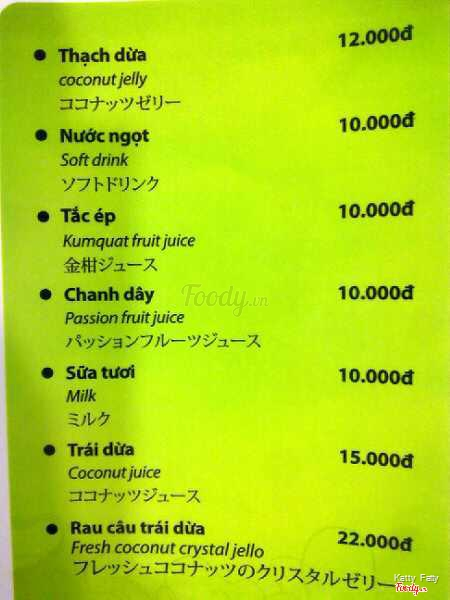 Thạch dừa 12.000đ
coconut jelly
ココナッツゼリー
Nước ngọt 10.000đ
Soft drink
ソフトドリンク
Tắc ép 10.000đ
Kumquat fruit juice
金柑ジュース
Chanh dây 10.000đ
Passion fruit juice
パッションフルーツジュース
Foody.vn
Sữa tươi 10.000đ
Milk
ミルク
Trái dừa 15.000đ
Coconut juice
ココナッツジュース
Rau câu trái dừa 22.000đ
Fresh coconut crystal jello
フレッシュココナッツのクリスタルゼリー
Ketty Faty
Foody.vn